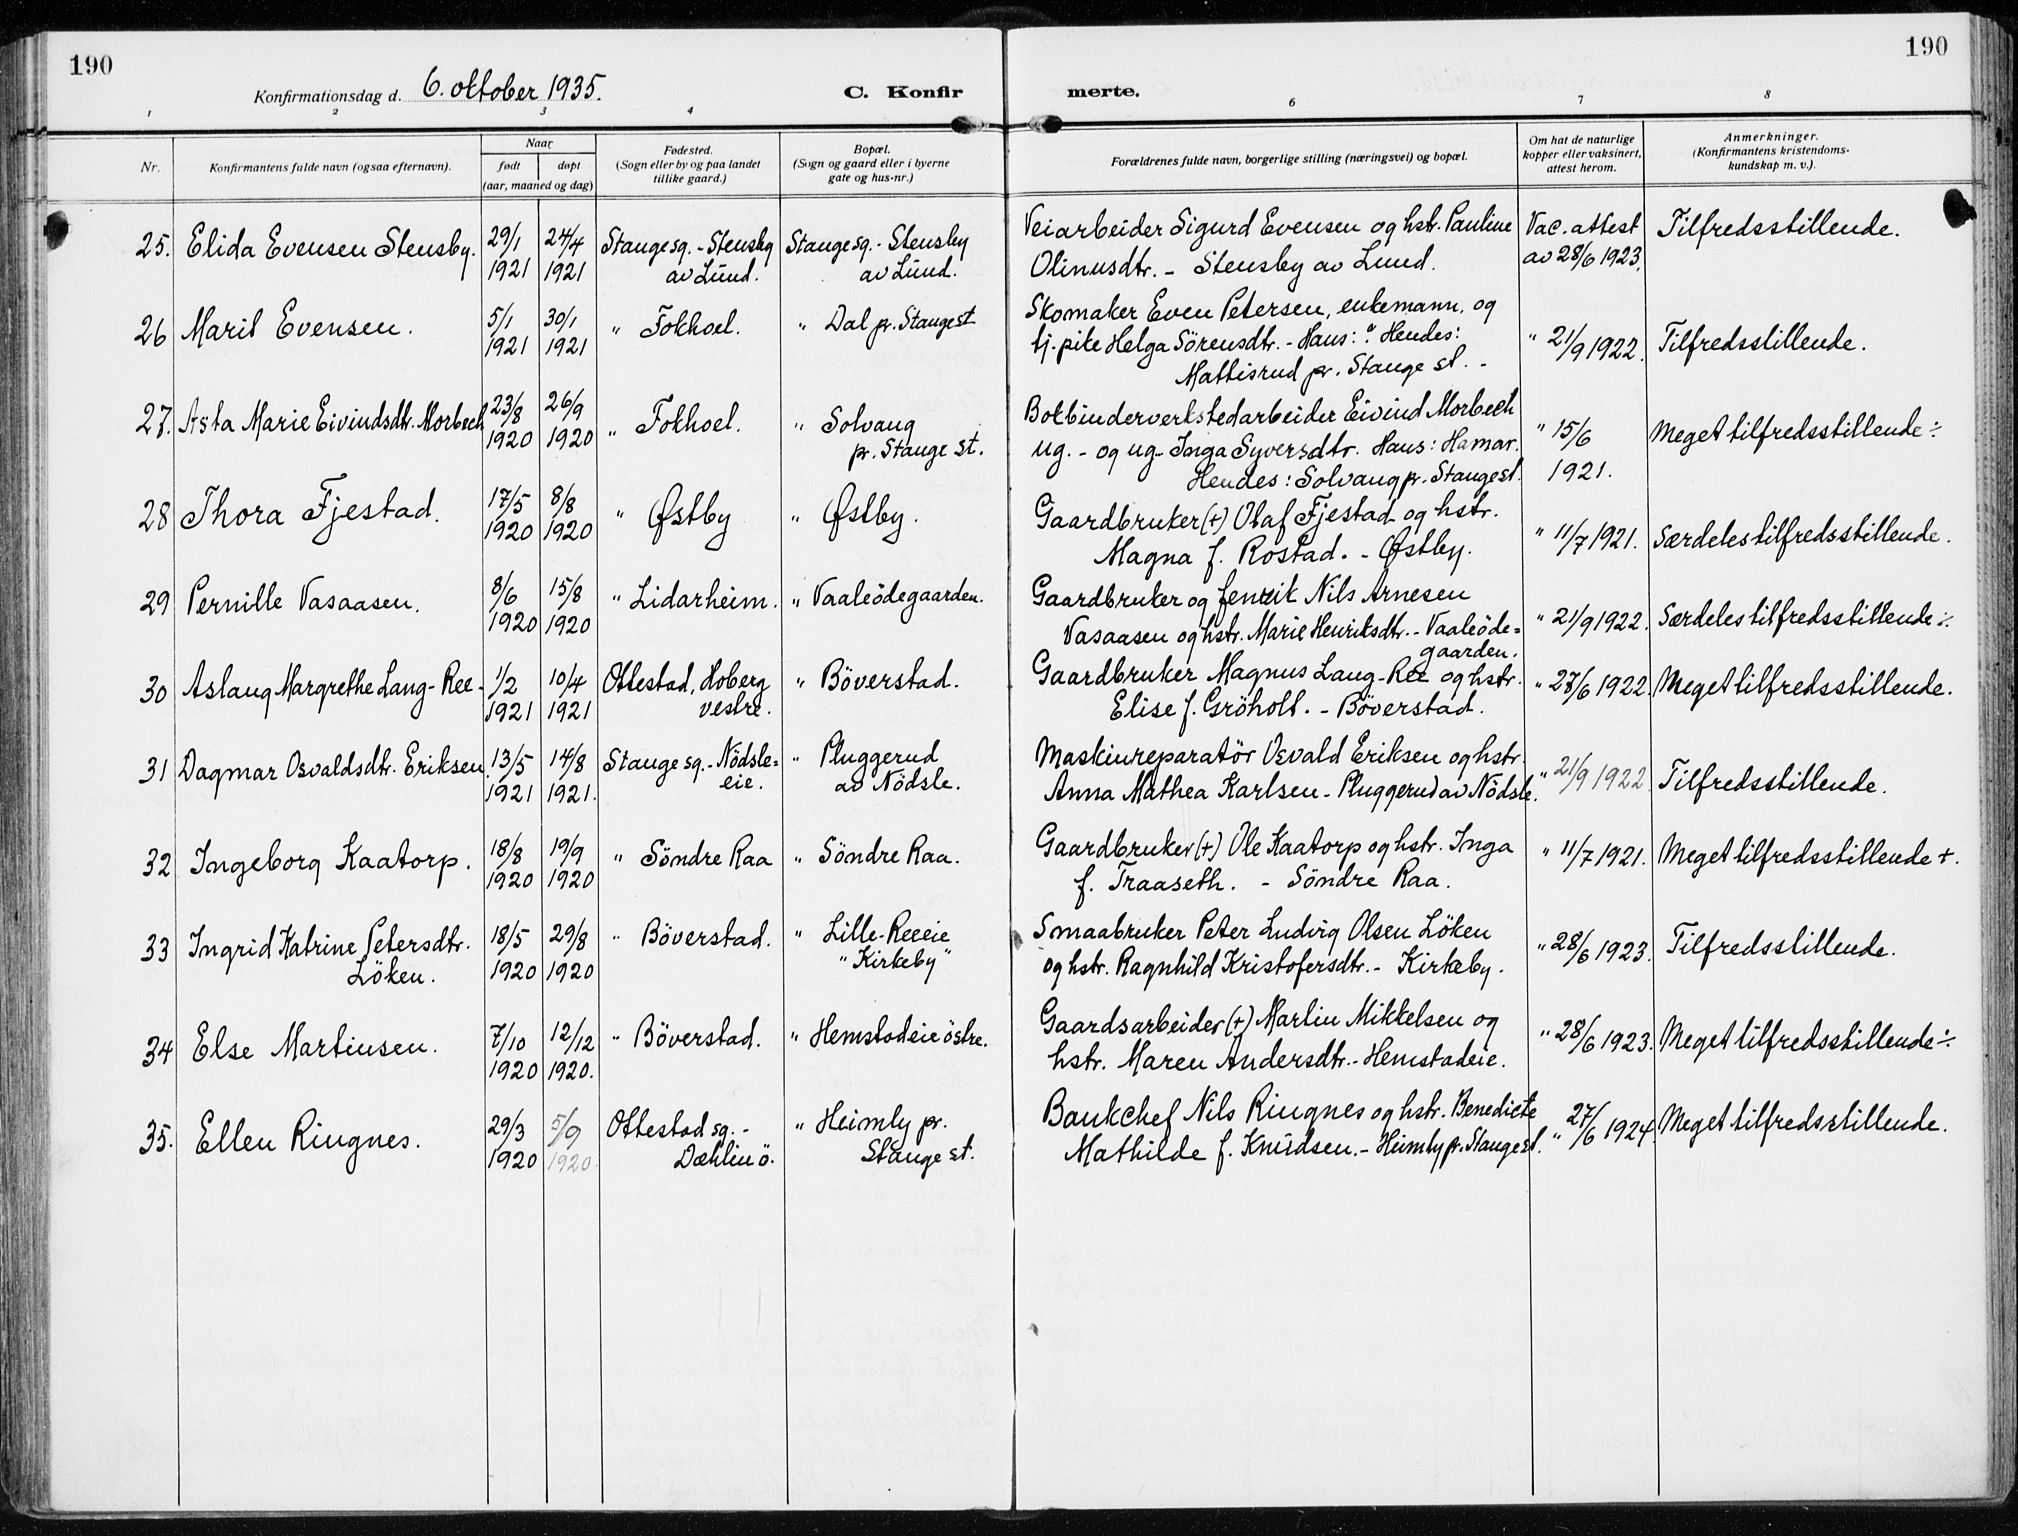 190
190
Konfirmationsdag d. 6. oktober 1935.
C. Konfir
merte.
1 2 3 4 6 7 8
Nr.
Konfirmantens fulde navn (ogsaa efternavn).
Naar
født døpt
(aar, maaned og dag)
Fødested.
(Sogn eller by og paa landet
tillike gaard.)
Bopæl.
(Sogn og gaard eller i byerne
gate og hus-nr.)
Forældrenes fulde navn, borgerlige stilling (næringsvei) og bopæl.
Om hat de naturlige
kopper eller vaksinert,
attest herom.
Anmerkninger.
(Konfirmantens kristendoms-
kundskap m. v.).
25. Elida Evensen Stensby. 29/1 24/4 Stange sg. - Stensby Stange sg. - Stensby Veiarbeider Sigurd Evensen og hstr. Pauline Vac. attest Tilfredsstillende.
1921 1921 av Lund. av Lund. Olinusdtr. - Stensby av Lund. av 28/6 1923.
26 Marit Evensen. 5/1 30/1 " Fokhoel. " Dal pr. Stange st Skomaker Even Petersen, enkemann, og
1921 1921 tj. pike Helga Sörensdtr. - Hans: ? Hendes: " 21/9 1922. Tilfredsstillende.
Mattisrud pr. Stange st. -
27. Asta Marie Eivindsdtr. Morbech 23/8 26/9 " Fokhoel. " Solvang Bokbinderverkstedarbeider Eivind Morbech " 15/6 Meget tilfredsstillende ÷
1920 1920 pr. Stange st. ug. - og ug - Inga Syversdtr. Hans: Hamar. 1921.
Hendes: Solvang pr. Stange st.
28 Thora Fjestad. 17/5 8/8 " Østby " Østby. Gaardbruker (+) Olaf Fjestad og hstr. " 11/7 1921. Særdeles tilfredsstillende.
1920 1920 Magna f. Rostad. - Østby.
29 Pernille Vasaasen. 8/6 15/8 " Lidarheim. " Vaaleödegaarden. Gaardbruker og fenrik Nils Arnesen " 21/9 1922. Særdeles tilfredsstillende ÷
1920 1920 Vasaasen og hstr. Marie Henriksdtr. - Vaaleöde=
gaarden.
30 Aslaug Margrethe Lang-Ree - 1/2 10/4 Ottestad, Hoberg " Böverstad. Gaardbruker Magnus Lang-Ree og hstr. " 27/6 1922. Meget tilfredsstillende.
1921 1921 vestre. Elise f. Gröholt. - Böverstad.
31 Dagmar Osvaldsdtr. Eriksen. 13/5 14/8 Stange sg. - Nödsle= " Pluggerud Maskinreparatör Osvald Eriksen og hstr. " 21/9 1922 Tilfredsstillende.
1921 1921. eie. av Nödsle. Anna Mathea Karlsen - Pluggerud av Nödsle.
32 Ingeborg Kaatorp. 18/8 19/9 " Söndre Raa " Söndre Raa. Gaardbruker (+) Ole Kaatorp og hstr. Inga " 11/7 1921. Meget tilfredsstillende +.
1920 1920 f. Traaseth. - Söndre Raa.
33 Ingrid Katrine Petersdtr. 18/5 29/8 " Böverstad. " Lille-Reeeie Smaabruker Peter Ludvig Olsen Löken " 28/6 1923. Tilfredsstillende.
Löken. 1920 1920 "Kirkeby" og hstr. Ragnhild Kristofersdtr. - Kirkeby.
34 Else Martinsen. 7/10 12/12 " Böverstad. " Hemstadeie östre. Gaardsarbeider (+) Martin Mikkelsen og " 28/6 1923. Meget tilfredsstillende ÷
1920 1920. hstr. Maren Andersdtr. - Hemstadeie.
35. Ellen Ringnes. 29/3 5/9 Ottestad sg. - " Heimly pr. Bankchef Nils Ringnes og hstr. Benedicte " 27/6 1924. Meget tilfredsstillende.
1920 1920. Dæhlin ö. Stange st. Mathilde f. Knudsen. - Heimly pr. Stange st.